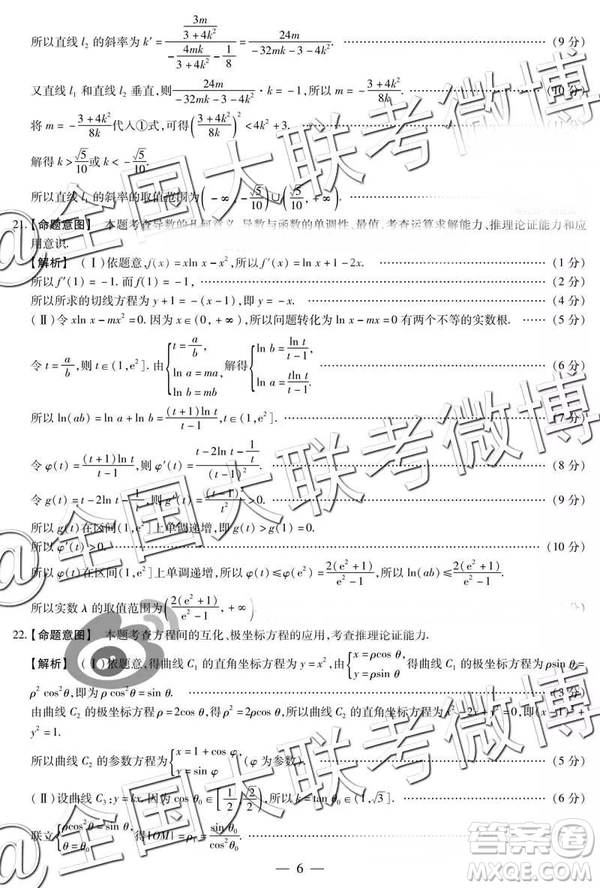 所以直线 l₂ 的斜率为 k′ = (3m/(3+4k²))/(-4mk/(3+4k²) - 1/8) = 24m/(-32mk-3-4k²). (9 分)
又直线 l₁ 和直线 l₂ 垂直,则 24m/(-32mk-3-4k²)·k = -1,所以 m = -(3+4k²)/8k. (10 分)
将 m = -(3+4k²)/8k 代入①式,可得((3+4k²)/8k)² < 4k²+3.
解得 k > √5/10 或 k < -√5/10.
所以直线 l₁ 的斜率的取值范围为(-∞, -√5/10)∪(√5/10, +∞).
21.【命题意图】 本题考查导数的几何意义、导数与函数的单调性、最值,考查运算求解能力、推理论证能力和应
用意识.
【解析】 (Ⅰ)依题意,f(x) = xln x - x²,所以 f′(x) = ln x + 1 - 2x. (1 分)
所以 f′(1) = -1. 而 f(1) = -1, (2 分)
所以所求的切线方程为 y+1 = -(x-1),即 y = -x. (4 分)
(Ⅱ)令 xln x - mx² = 0. 因为 x∈(0, +∞),所以问题转化为 ln x - mx = 0 有两个不等的实数根. (5 分)
令 t = a/b,则 t∈(1,e²]. 由{t = a/b, ln a = ma, ln b = mb 解得{ln b = ln t/(t-1), ln a = tln t/(t-1). (6 分)
所以 ln(ab) = ln a + ln b = (t+1)ln t/(t-1),t∈(1,e²]. (7 分)
令 φ(t) = (t+1)ln t/(t-1),则 φ′(t) = (t-2ln t-1/t)/(t-1)². (8 分)
令 g(t) = t-2ln t-1/t. (9 分)
所以 g(t)在区间(1,e²]上单调递增,即 g(t) > g(1) = 0.
所以 φ′(t) > 0. (10 分)
所以 φ(t)在区间(1,e²]上单调递增,所以 φ(t)≤φ(e²) = 2(e²+1)/(e²-1),所以 ln(ab)≤2(e²+1)/(e²-1).
所以实数 λ 的取值范围为[2(e²+1)/(e²-1), +∞).
22.【命题意图】 本题考查方程间的互化、极坐标方程的应用,考查推理论证能力.
【解析】 (Ⅰ)依题意,得曲线 C₁ 的直角坐标方程为 y = x²,由{x = ρcos θ, y = ρsin θ 得曲线 C₁ 的极坐标方程为 ρsin θ =
ρ²cos²θ,即为 ρcos²θ = sin θ. (3 分)
由曲线 C₂ 的极坐标方程 ρ = 2cos θ,得曲线 C₂ 的直角坐标方程为 x² - 2x + y² = 0,即(x-1)² +
y² = 1.
所以曲线 C₂ 的参数方程为{x = 1+cos φ, y = sin φ (φ 为参数). (5 分)
(Ⅱ)设曲线 C₃:y = kx. 因为 cos θ₀∈[1/2, √2/2],所以 k = tan θ₀∈[1,√3]. (6 分)
联立{ρcos²θ = sin θ, θ = θ₀ 得|OM| = ρ₁ = sin θ₀/cos²θ₀
— 6 —
@全国大联考微博
@全国大联考微博
@全国大联考微博
答案圈
MXQE.COM